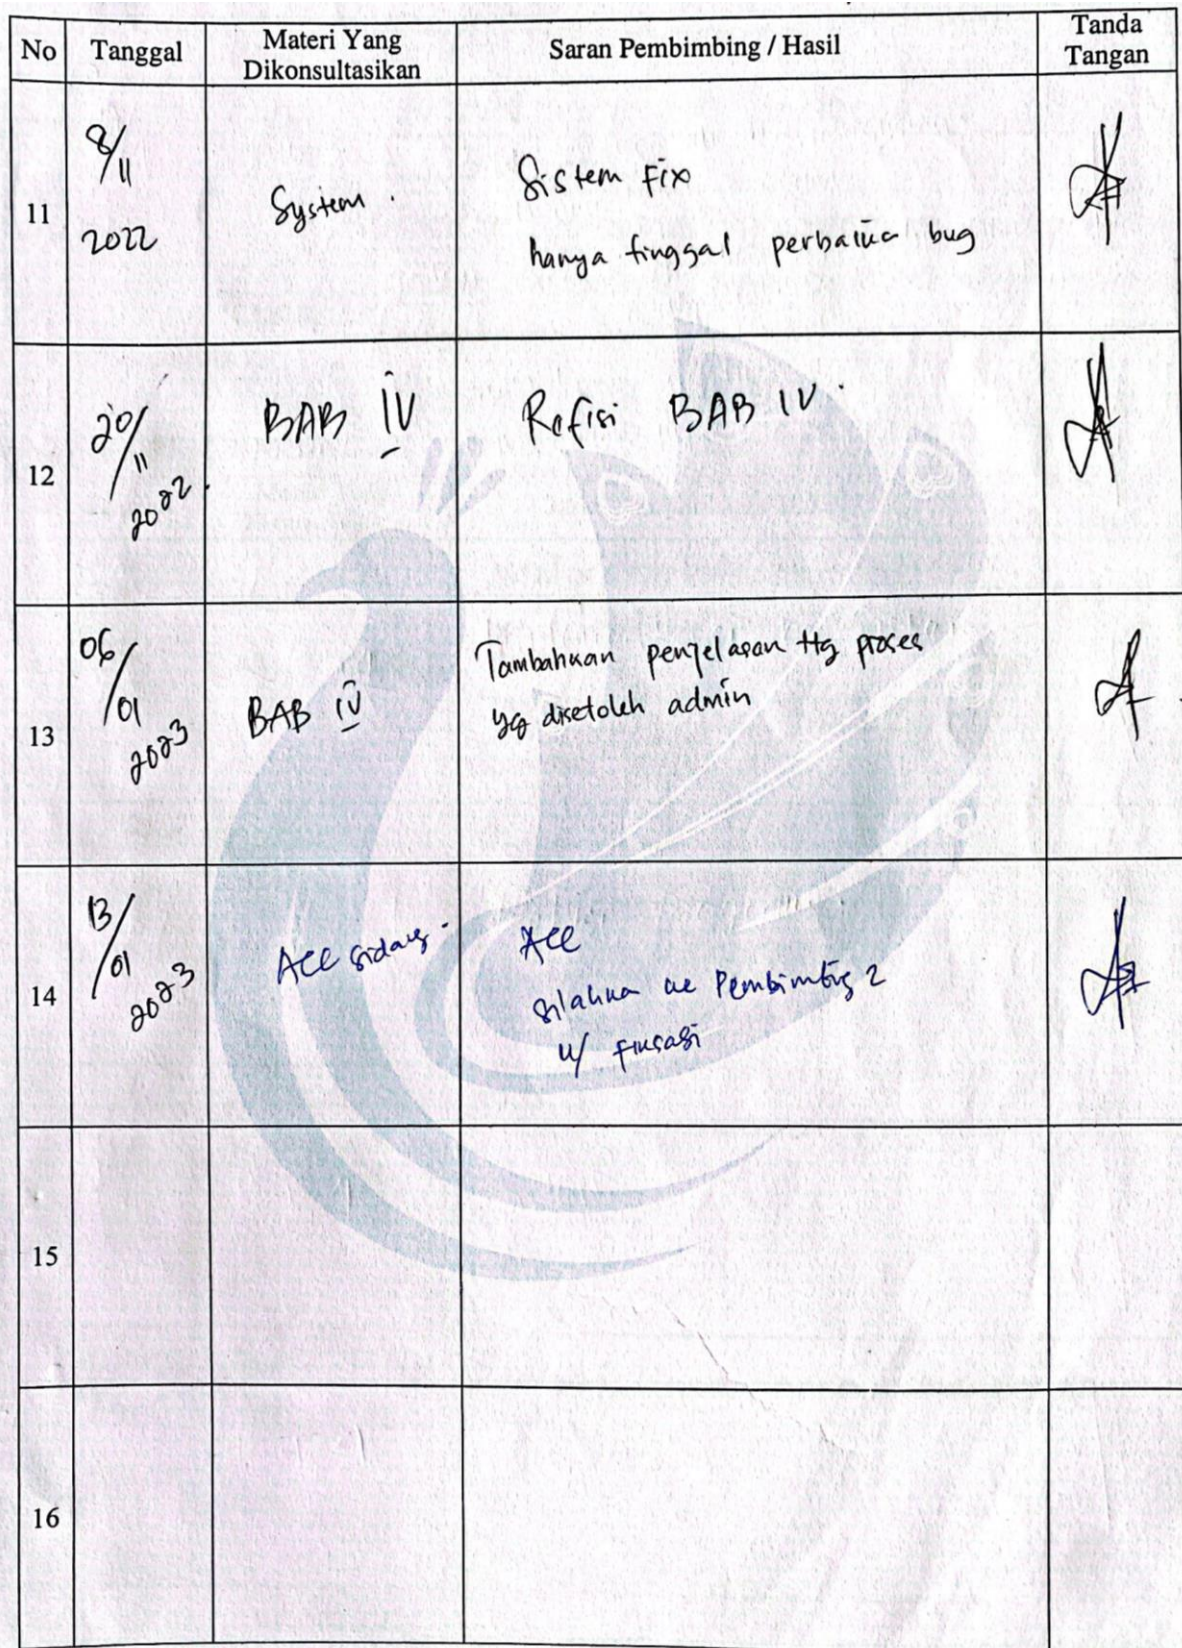 No Tanggal Materi Yang Dikonsultasikan Saran Pembimbing / Hasil Tanda Tangan
11 8/11 2022 System. Sistem Fix
hanya tinggal perbaika bug
12 20/11 2022. BAB IV Refisi BAB IV.
13 06/01 2023 BAB IV Tambahkan penjelasan ttg proses
yg disetoleh admin
14 13/01 2023 ACC sidang. ACC
silahka ke Pembimbing 2
u/
15
16